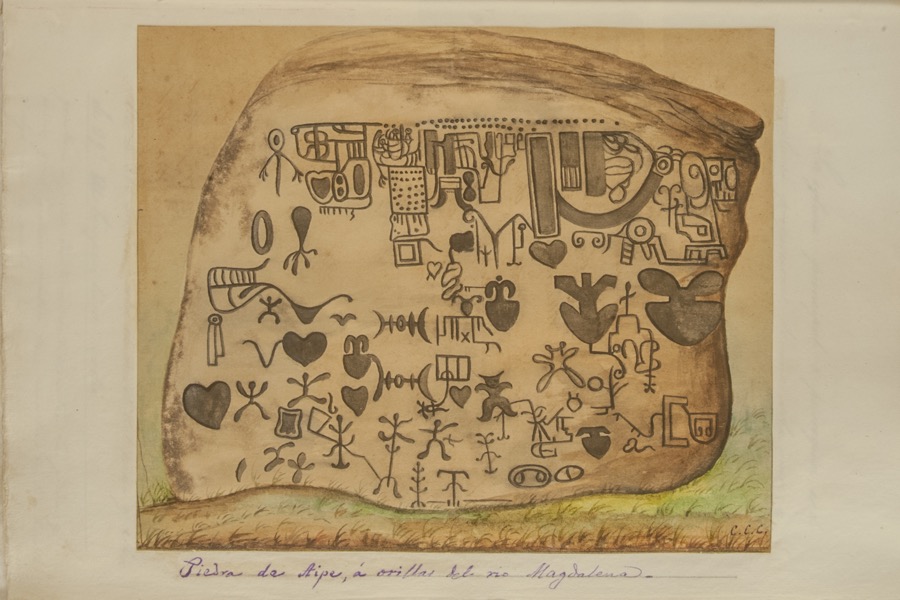 C.C.C.
Piedra de Aipe, á orillas del rio Magdalena_